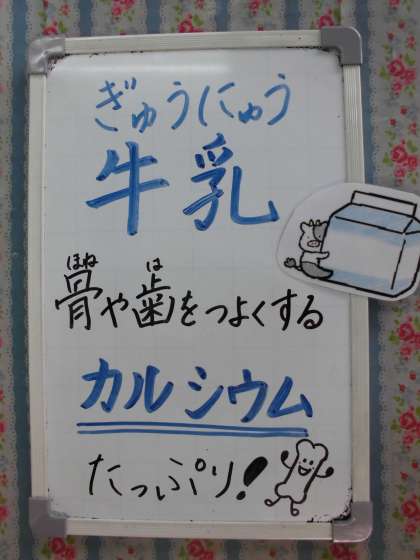 ぎゅうにゅう
牛乳
ほね は
骨や歯をつよくする
カルシウム
たっぷり!